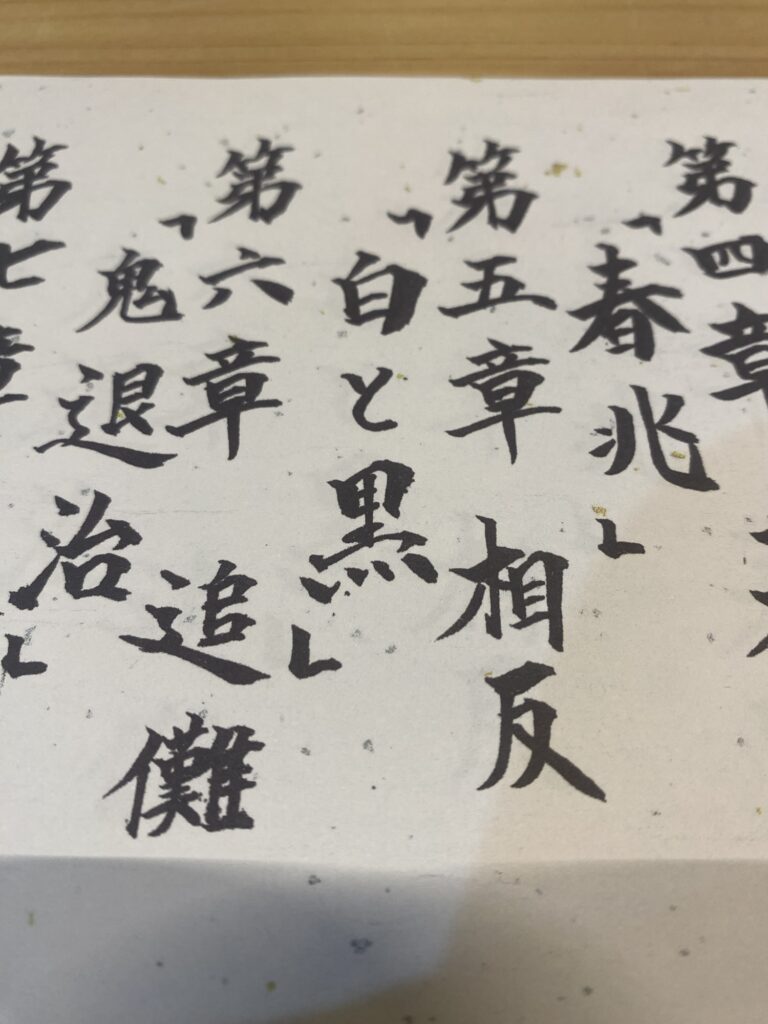 第四章
「春兆」
第五章 相反
「白と黒」
第六章 追儺
「鬼退治」
第七章